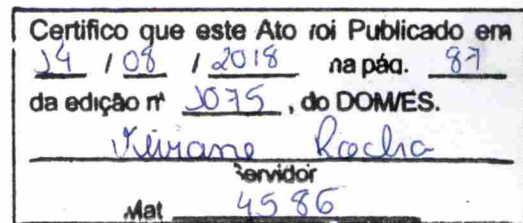 Certifico que este Ato foi Publicado em
14 / 08 / 2018 na pág. 87
da edição nº 1075, do DOM/ES.
Viviane Rocha
Servidor
Mat 4586